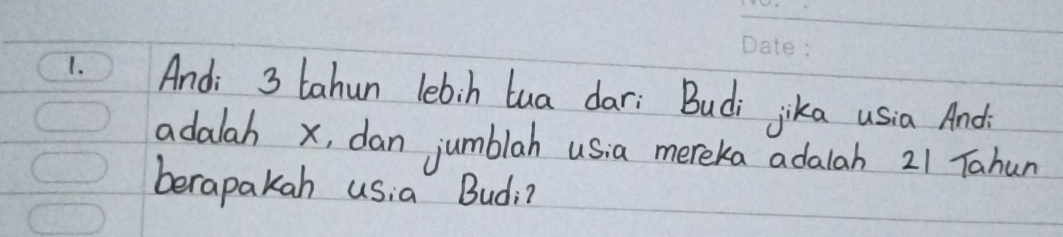 Date:
1. Andi 3 tahun lebih tua dari Budi jika usia Andi
adalah x, dan jumblah usia mereka adalah 21 Tahun
berapakah usia Budi?